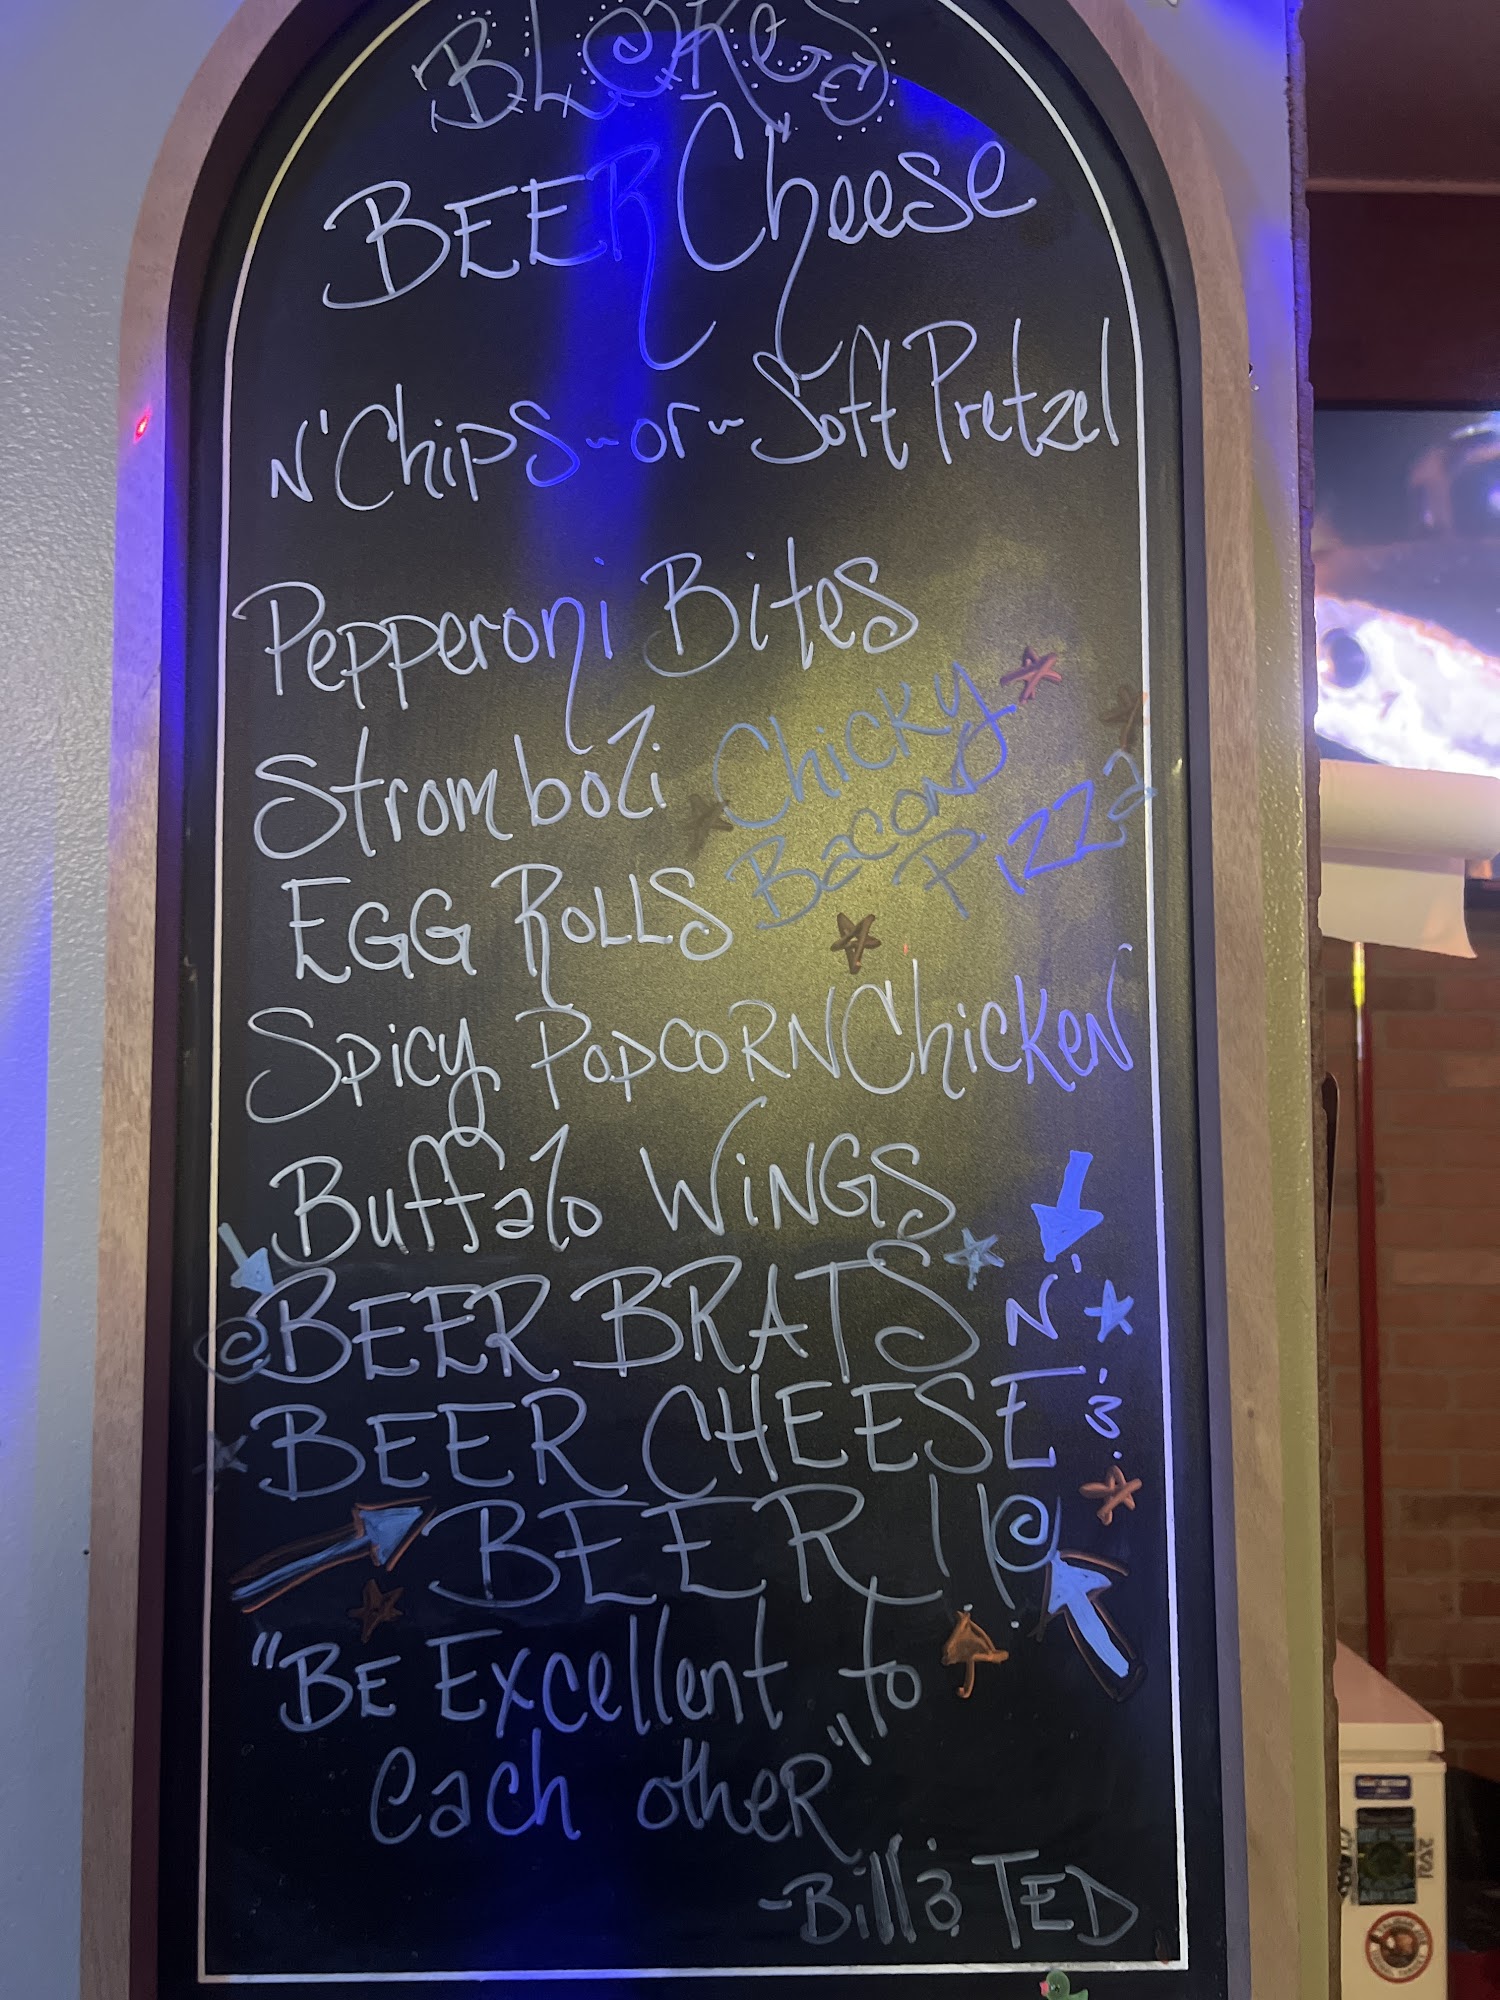 BLaKeS
BEER Cheese
N' Chips ~or~ Soft Pretzel
Pepperoni Bites
Stromboli
Chicky
Bacony
Pizza
EGG ROLLS
Spicy POPCORN Chicken
Buffalo WiNGS
BEER BRATS N'
BEER CHEESE &
BEER !!
"BE Excellent to
each otheR"
-Bill & TED